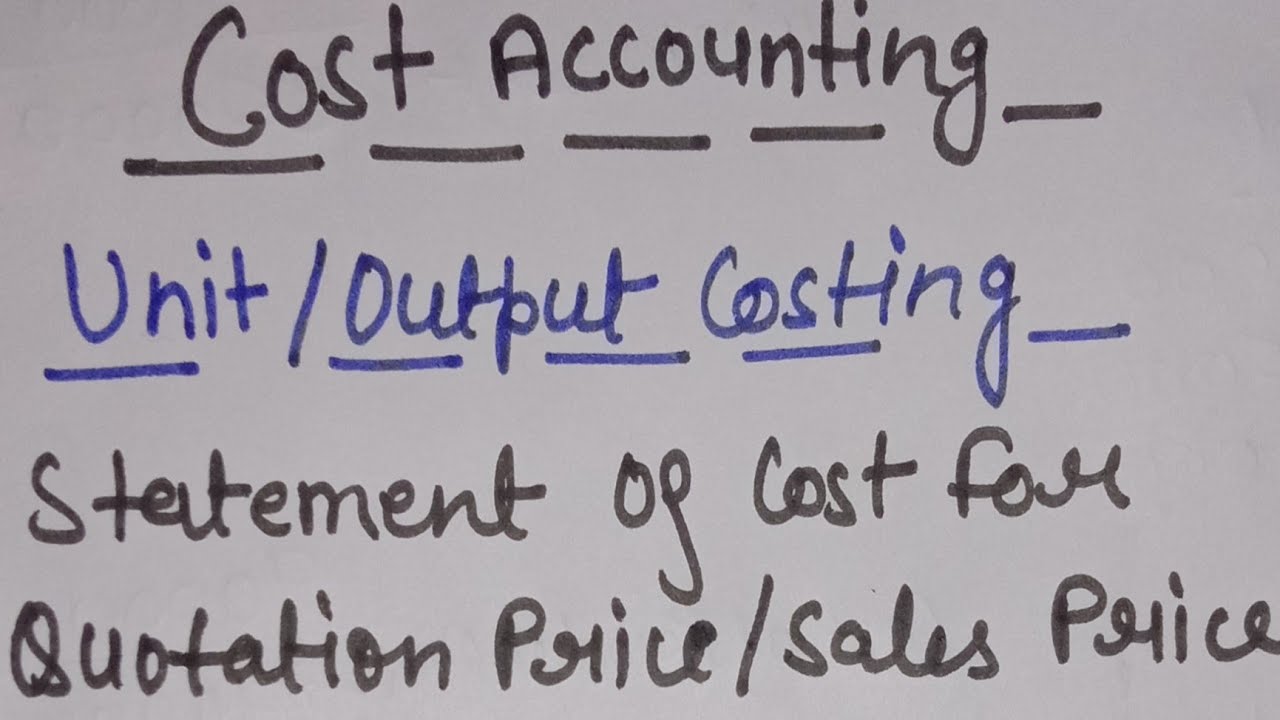 Cost Accounting
Unit/Output Costing
Statement of Cost for
Quotation Price/Sales Price